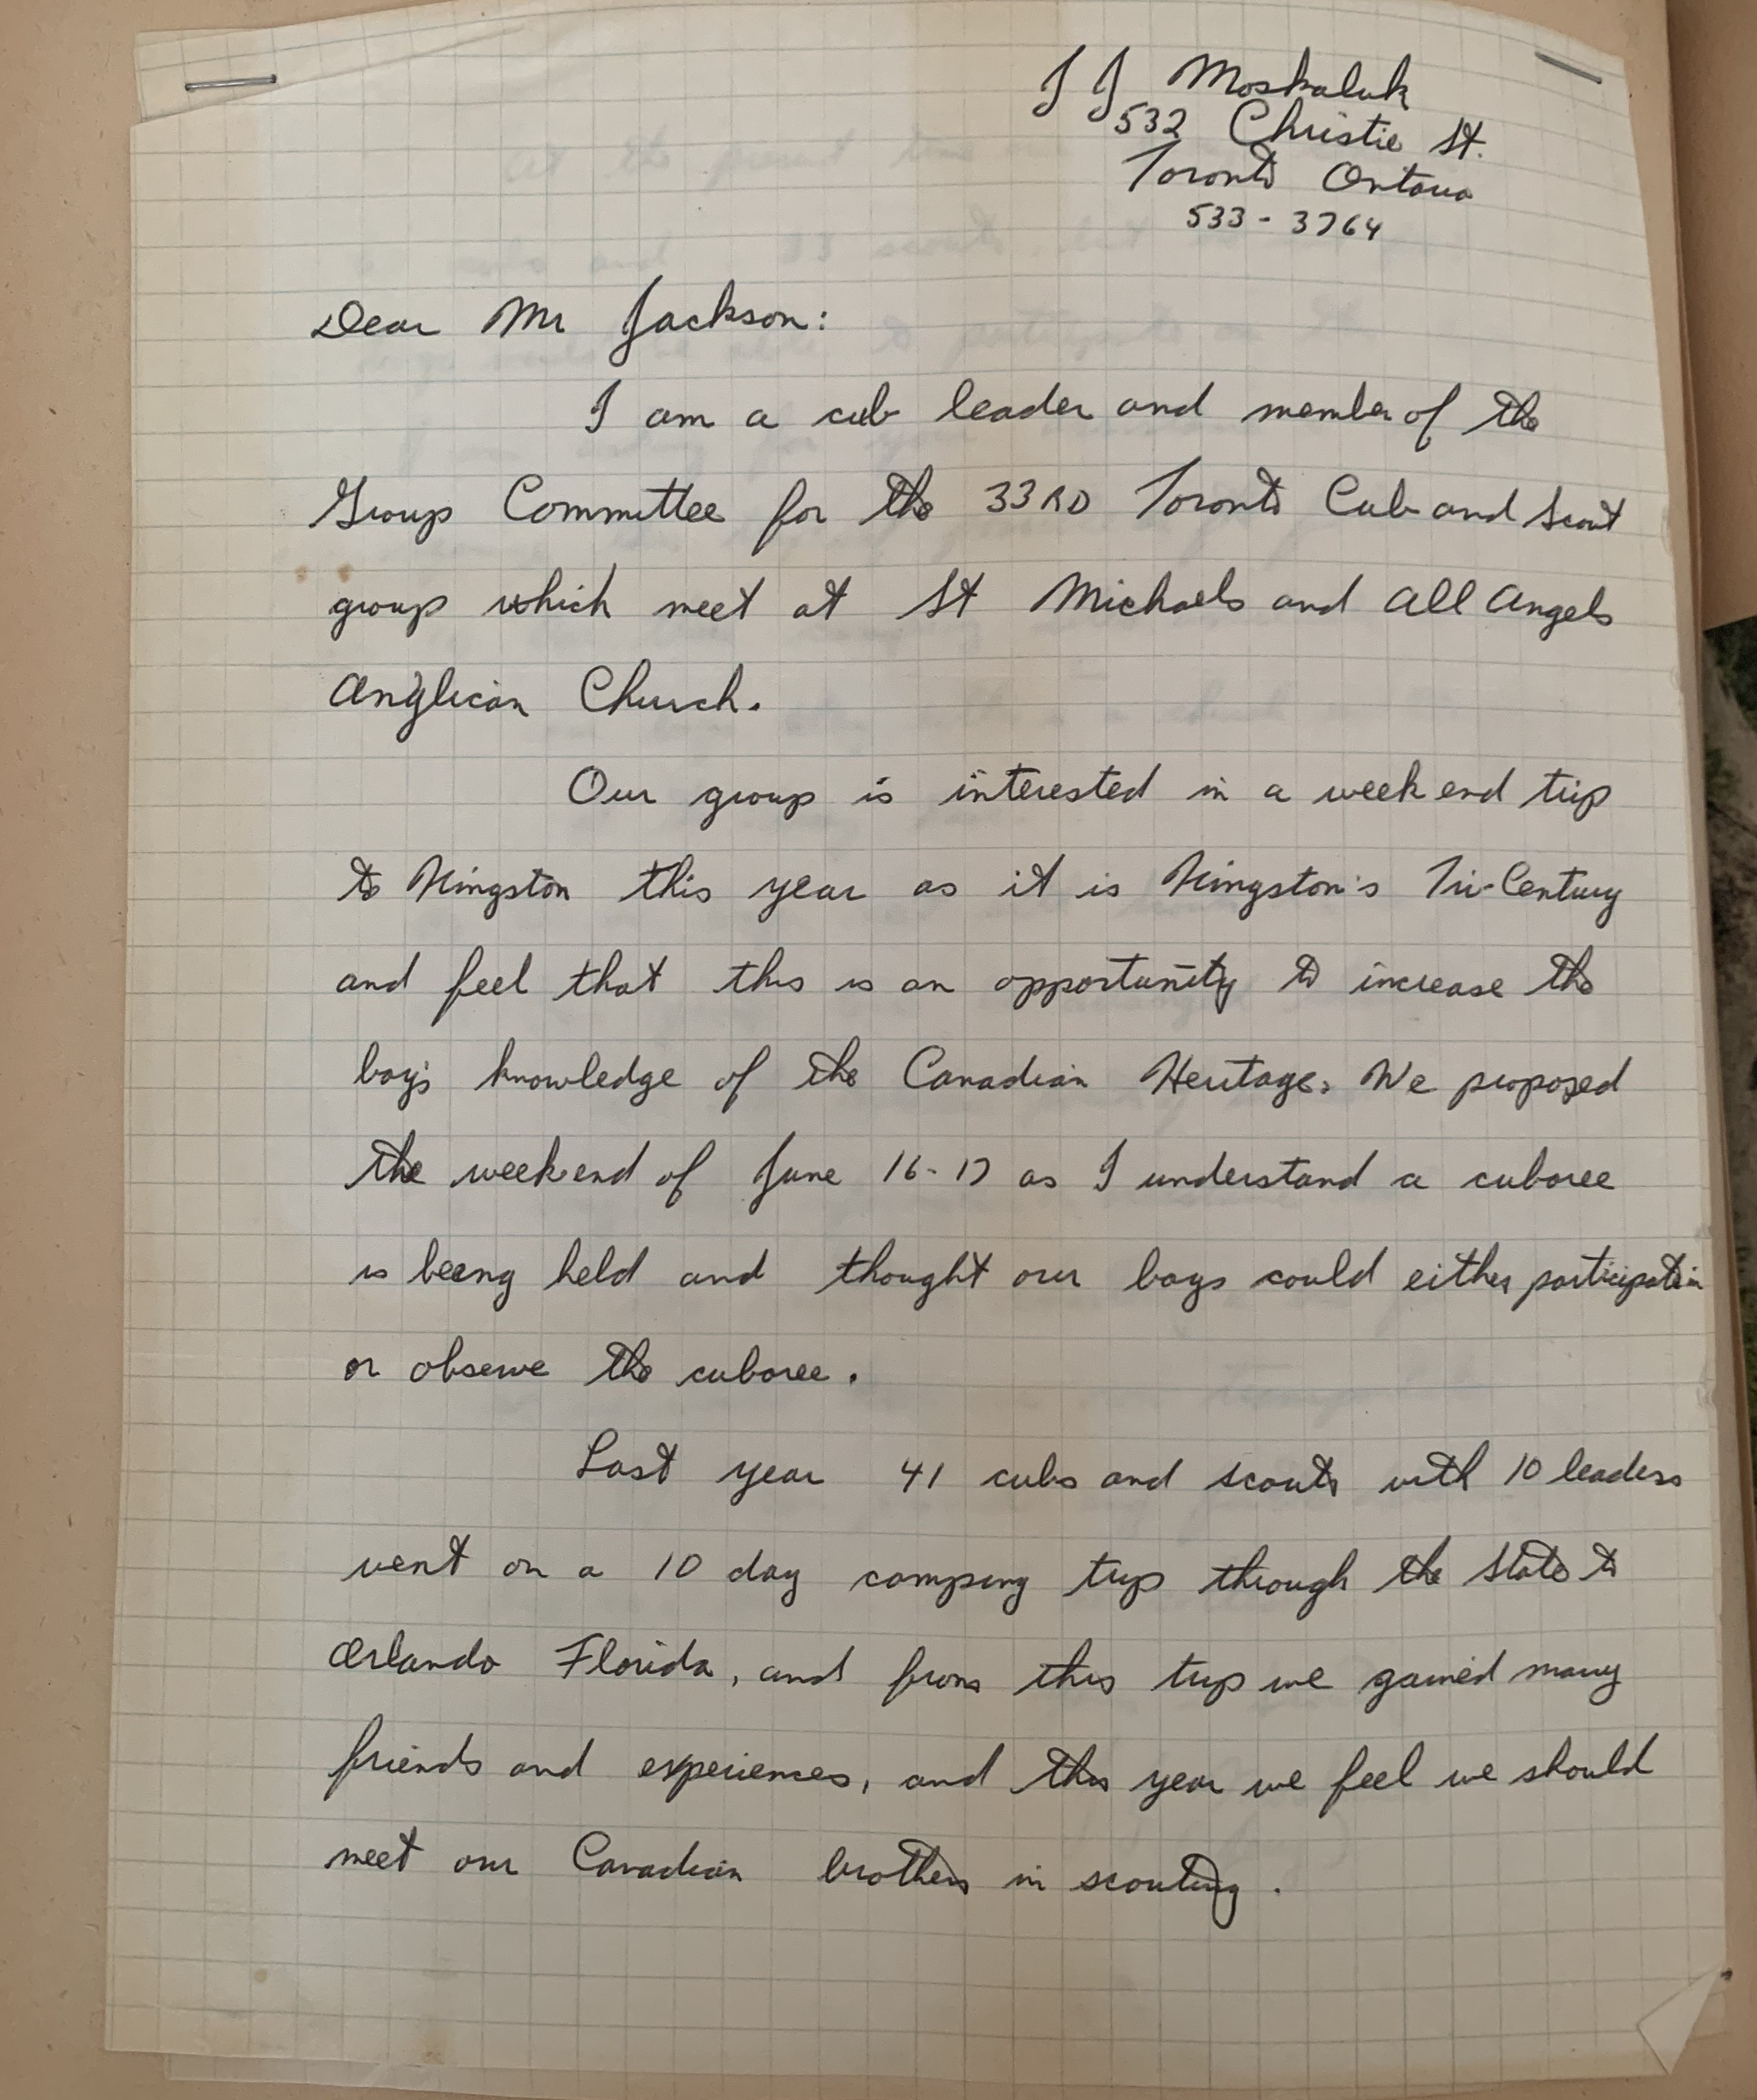 J J Moskaluk
532 Christie St.
Toronto Ontario
533-3764
Dear Mr Jackson:
I am a cub leader and member of the
Group Committee for the 33RD Toronto Cub and Scout
group which meet at St Michaels and All Angels
Anglican Church.
Our group is interested in a week end trip
to Kingston this year as it is Kingston's Tri-Century
and feel that this is an opportunity to increase the
boy's knowledge of the Canadian Heritage. We proposed
the weekend of June 16-17 as I understand a cuboree
is being held and thought our boys could either participate in
or observe the cuboree.
Last year 41 cubs and scouts with 10 leaders
went on a 10 day camping trip through the States to
Orlando Florida, and from this trip we gained many
friends and experiences, and this year we feel we should
meet our Canadian brothers in scouting.